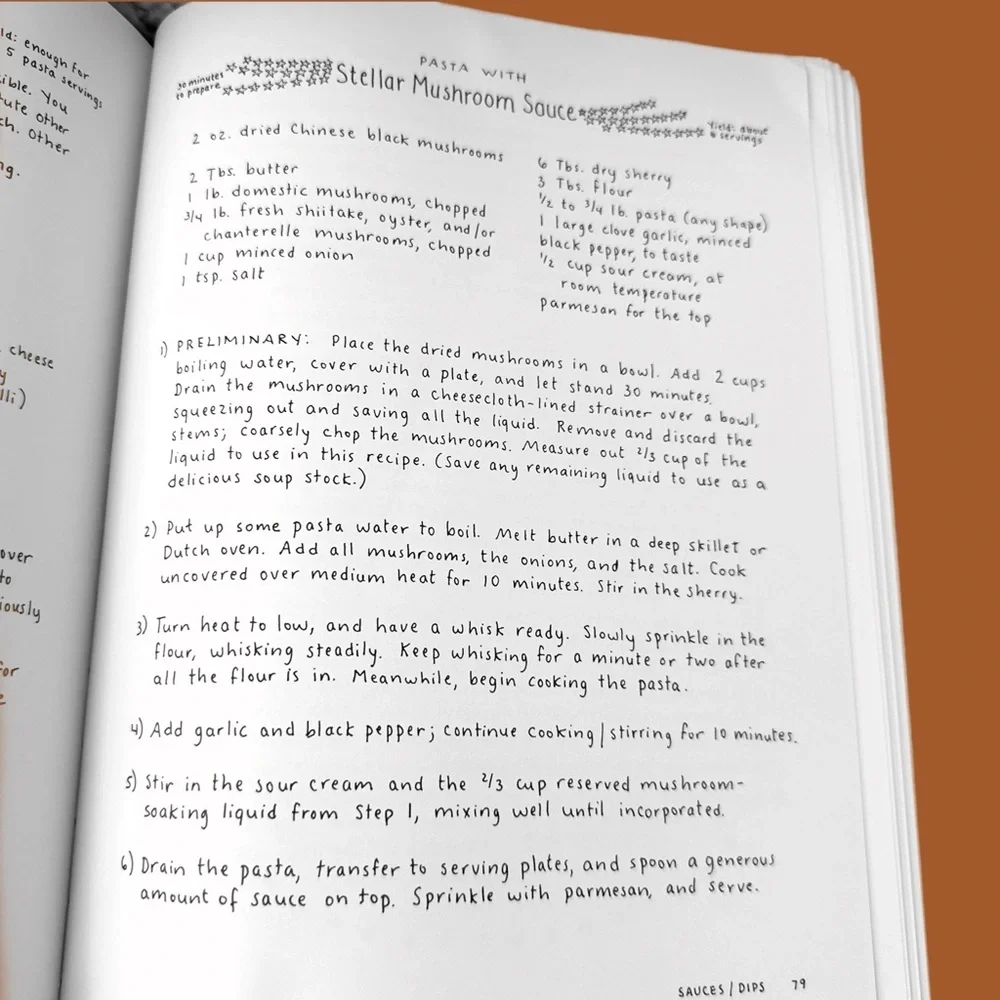 ld: enough for
5 pasta servings
ible. You
tute other
ch. Other
ng.
cheese
y
lli)
over
to
iously
for
e
PASTA WITH
30 minutes
to prepare
Stellar Mushroom Sauce
Yield: about
servings
2 oz. dried Chinese black mushrooms
2 Tbs. butter
1 lb. domestic mushrooms, chopped
3/4 lb. fresh shiitake, oyster, and/or
chanterelle mushrooms, chopped
1 cup minced onion
1 tsp. salt
6 Tbs. dry sherry
3 Tbs. flour
1/2 to 3/4 lb. pasta (any shape)
1 large clove garlic, minced
black pepper, to taste
1/2 cup sour cream, at
room temperature
parmesan for the top
1) PRELIMINARY: Place the dried mushrooms in a bowl. Add 2 cups
boiling water, cover with a plate, and let stand 30 minutes.
Drain the mushrooms in a cheesecloth-lined strainer over a bowl,
squeezing out and saving all the liquid. Remove and discard the
stems; coarsely chop the mushrooms. Measure out 2/3 cup of the
liquid to use in this recipe. (Save any remaining liquid to use as a
delicious soup stock.)
2) Put up some pasta water to boil. Melt butter in a deep skillet or
Dutch oven. Add all mushrooms, the onions, and the salt. Cook
uncovered over medium heat for 10 minutes. Stir in the sherry.
3) Turn heat to low, and have a whisk ready. Slowly sprinkle in the
flour, whisking steadily. Keep whisking for a minute or two after
all the flour is in. Meanwhile, begin cooking the pasta.
4) Add garlic and black pepper; continue cooking/stirring for 10 minutes.
5) Stir in the sour cream and the 2/3 cup reserved mushroom-
soaking liquid from Step 1, mixing well until incorporated.
6) Drain the pasta, transfer to serving plates, and spoon a generous
amount of sauce on top. Sprinkle with parmesan, and serve.
SAUCES/DIPS 79